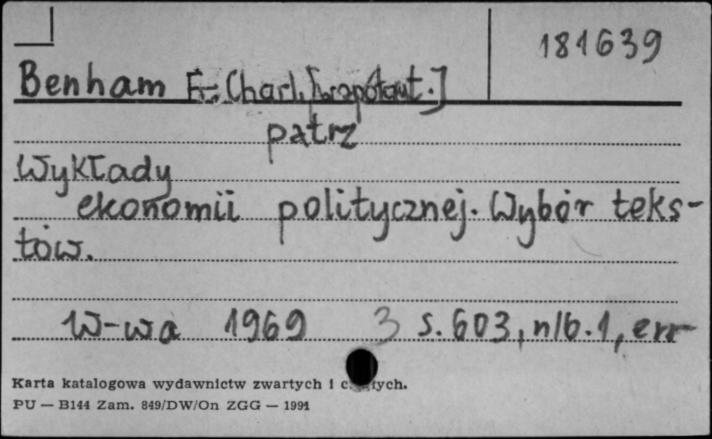 181639
Benham F. Charl. [współaut.]
patrz
Wykłady
ekonomii politycznej. Wybór teks-
tów.
W-wa 1969 3 s. 603, nlb. 1, err
Karta katalogowa wydawnictw zwartych i
PU — B144 Zam. 849/DW/On ZGG — 1991